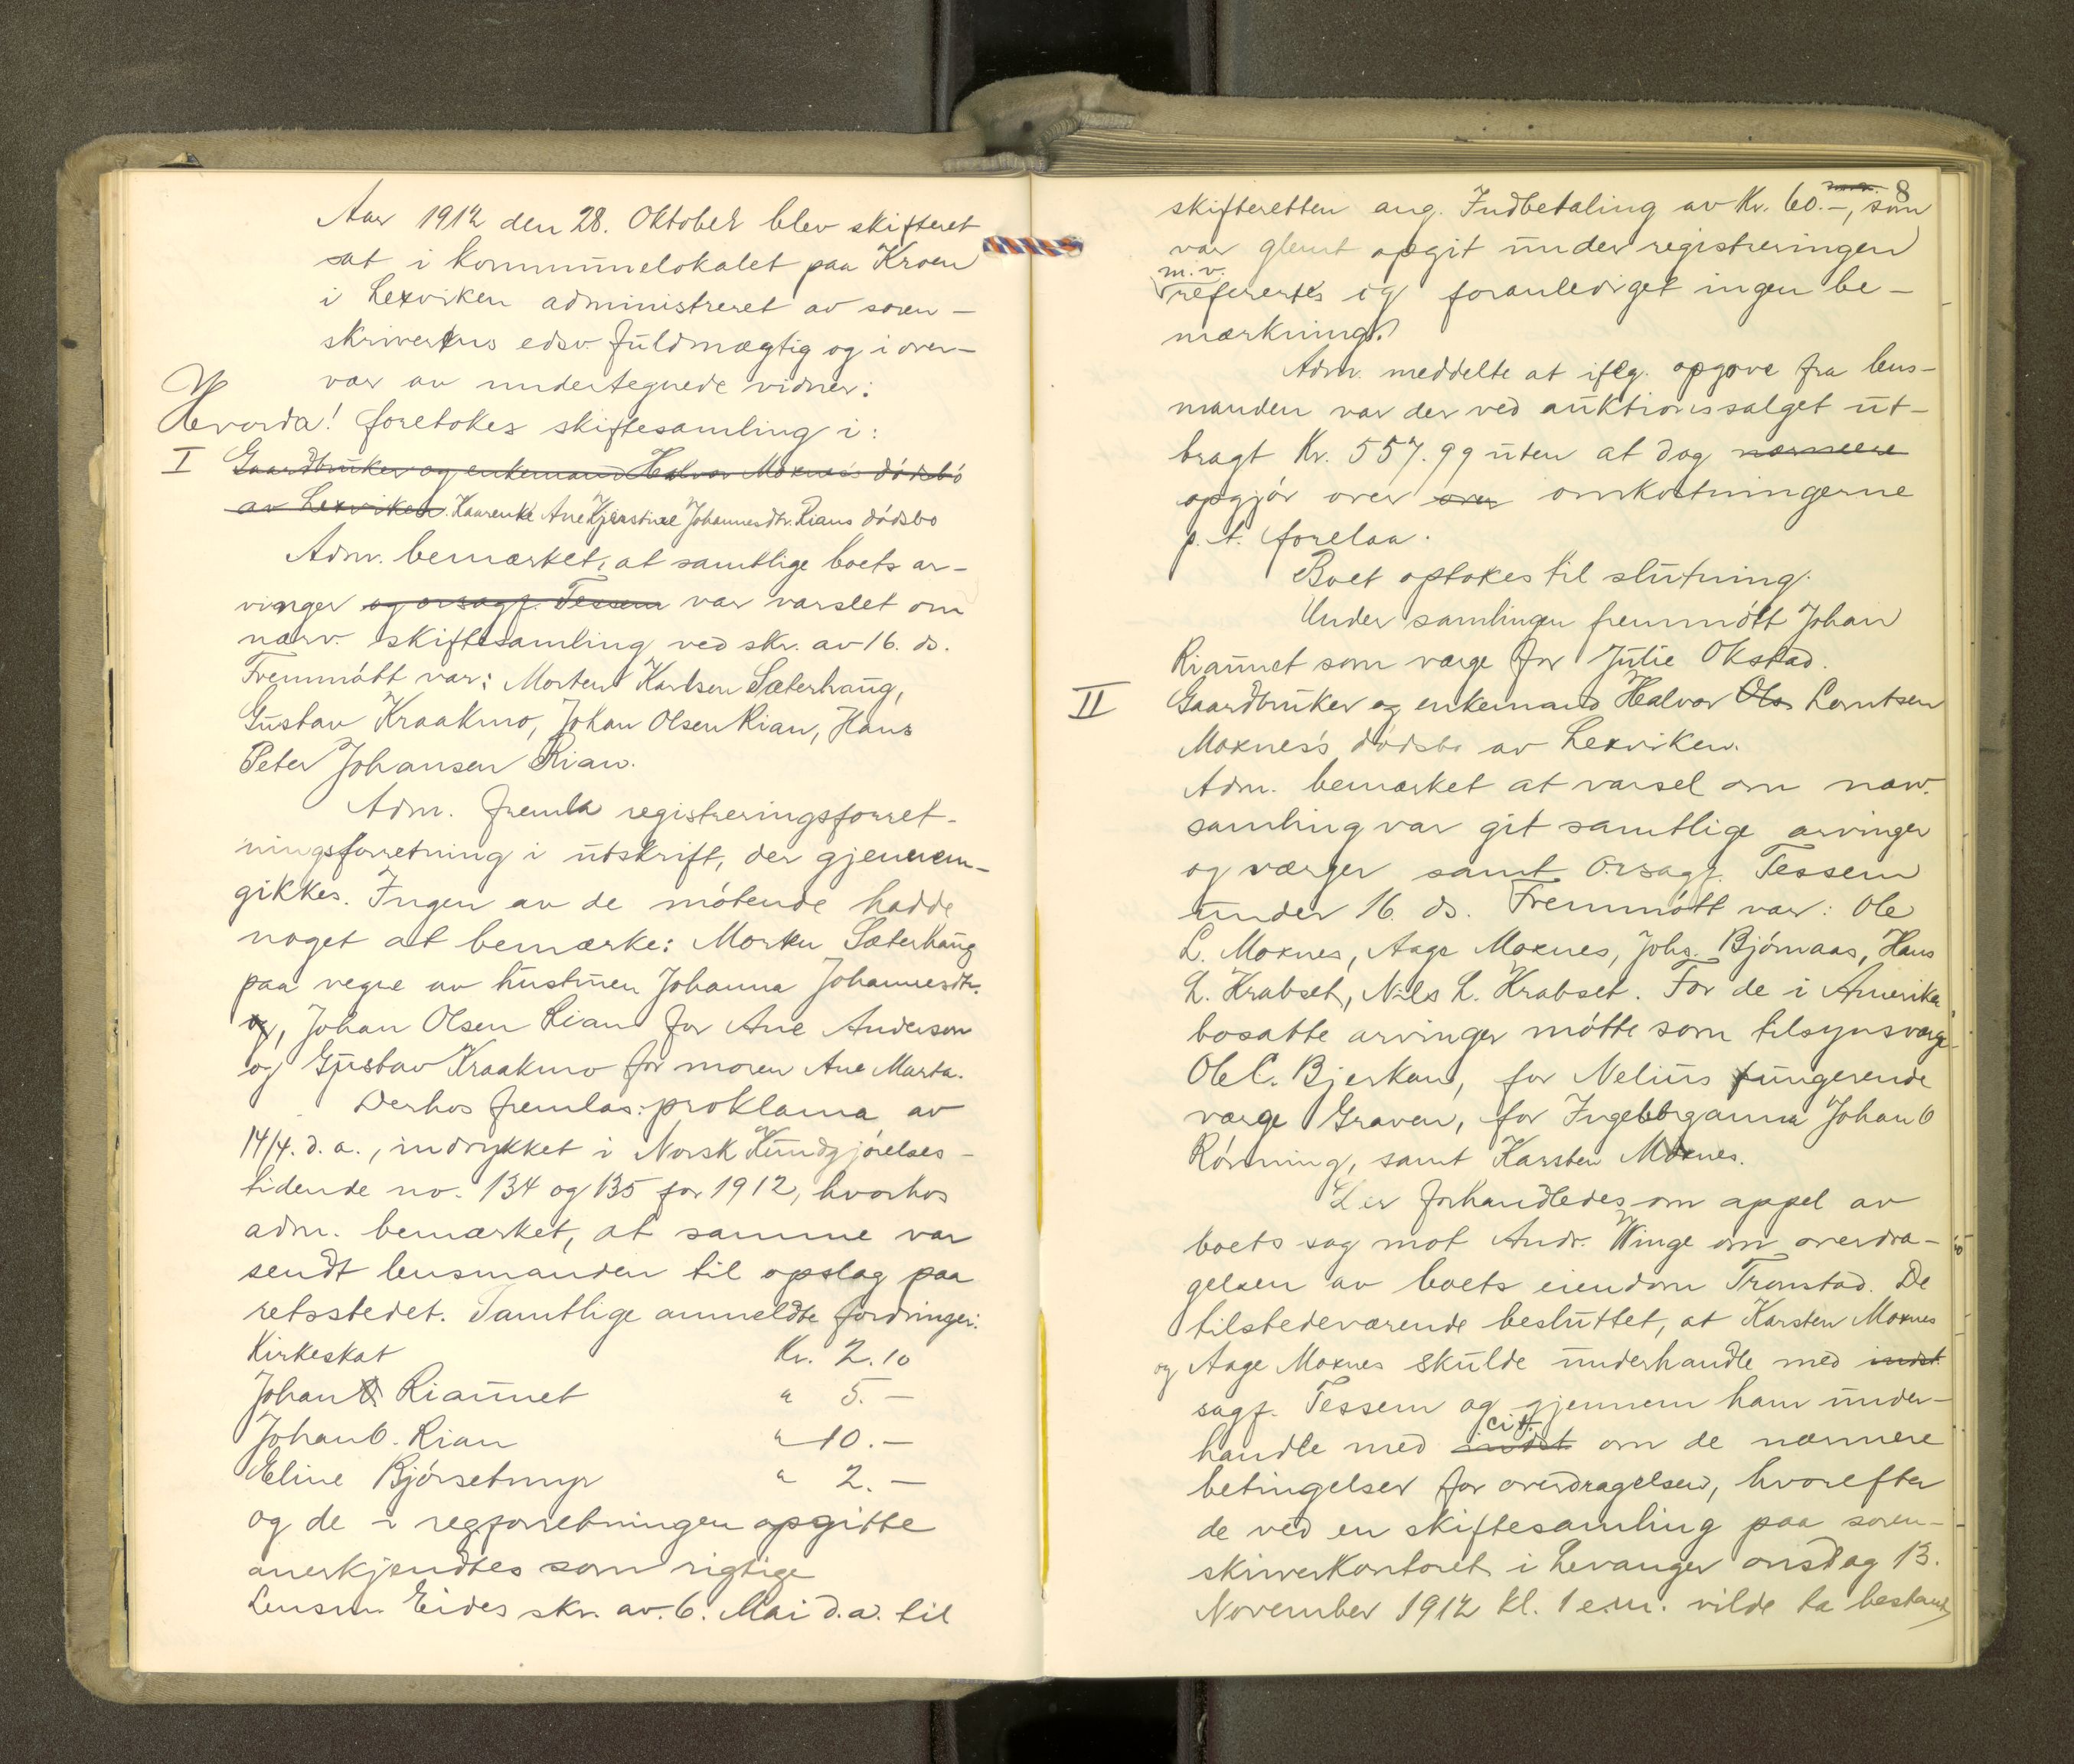 Aar 1912 den 28. Oktober blev skifteret
sat i kommunelokalet paa Kroen
i Lexviken administreret av soren-
skriverens edsv. fuldmægtig og i over-
vær av undertegnede vidner:
Hvorda! foretokes skiftesamling i:
I Gaardbruker og enkemand Halvor Moxnes's dødsbo
av Lexviken. Kaarenke Ane Kjerstine Johannesdtr. Rians dødsbo
Adm. bemærket, at samtlige boets ar-
vinger og orsagf. Tessem var varslet om
nærv. skiftesamling ved skr. av 16. ds.
Fremmøtt var: Morten Karlsen Sæterhaug,
Gustav Kraakmo, Johan Olsen Rian, Hans
Peter Johansen Rian.
Adm. fremla registreringsforret-
ningsforretning i utskrift, der gjennem-
gikkes. Ingen av de møtende hadde
noget at bemærke: Morten Sæterhaug
paa vegne av hustruen Johanna Johannesdtr.
og, Johan Olsen Rian for Ane Anderson
og Gustav Kraakmo for moren Ane Marta.
Derhos fremlas: proklama av
14/4. d. a., indrykket i Norsk Kundgjørelses-
tidende no. 134 og 135 for 1912, hvorhos
adm. bemærket, at samme var
sendt lensmanden til opslag paa
retsstedet. Samtlige anmeldte fordringer:
Kirkeskat Kr. 2.10
Johan O. Riaunet " 5.-
Johan O. Rian " 10.-
Eline Bjørsetmyr " 2.-
og de i regforretningen opgitte
anerkjendtes som rigtige
Lensm. Eides skr. av. 6. Mai d.a. til
8
skifteretten ang. Indbetaling av Kr. 60.-, som
var glemt opgit under registreringen
m. v.
refererte og foranlediget ingen be-
mærkning.
Adm. meddelte at iflg. opgave fra lens-
manden var der ved auktionssalget ut-
bragt Kr. 557.99 uten at dog nærmere
opgjør over over omkostningerne
p. t. forelaa.
Boet optokes til slutning.
Under samlingen fremmøtt Johan
Riaunet som værge for Julie Okstad.
II Gaardbruker og enkemand Halvor Ols Lorntsen
Moxnes's dødsbo av Lexviken.
Adm. bemærket at varsel om nærv.
samling var git samtlige arvinger
og værger samt orsagf. Tessem
under 16. ds. Fremmøtt var: Ole
L. Moxnes, Aage Moxnes, Johs. Bjørnaas, Hans
L. Krabset, Nils L. Krabset. For de i Amerika
bosatte arvinger møtte som tilsynsværge
Ole C. Bjerkan, for Nelius fungerende
værge Graven, for Ingeborganna Johan O
Rønning, samt Karsten Moxnes.
Der forhandledes om appel av
boets sag mot Andr. Winge om overdra-
gelsen av boets eiendom Tronstad. De
tilstedeværende besluttet, at Karsten Moxnes
og Aage Moxnes skulde underhandle med indst
sagf. Tessem og gjennem ham under-
cit.
handle med indst om de nærmere
betingelser for overdragelsen, hvorefter
de ved en skiftesamling paa soren-
skriverkontoret i Levanger onsdag 13.
November 1912 kl. 1 e.m. vilde ta bestemt